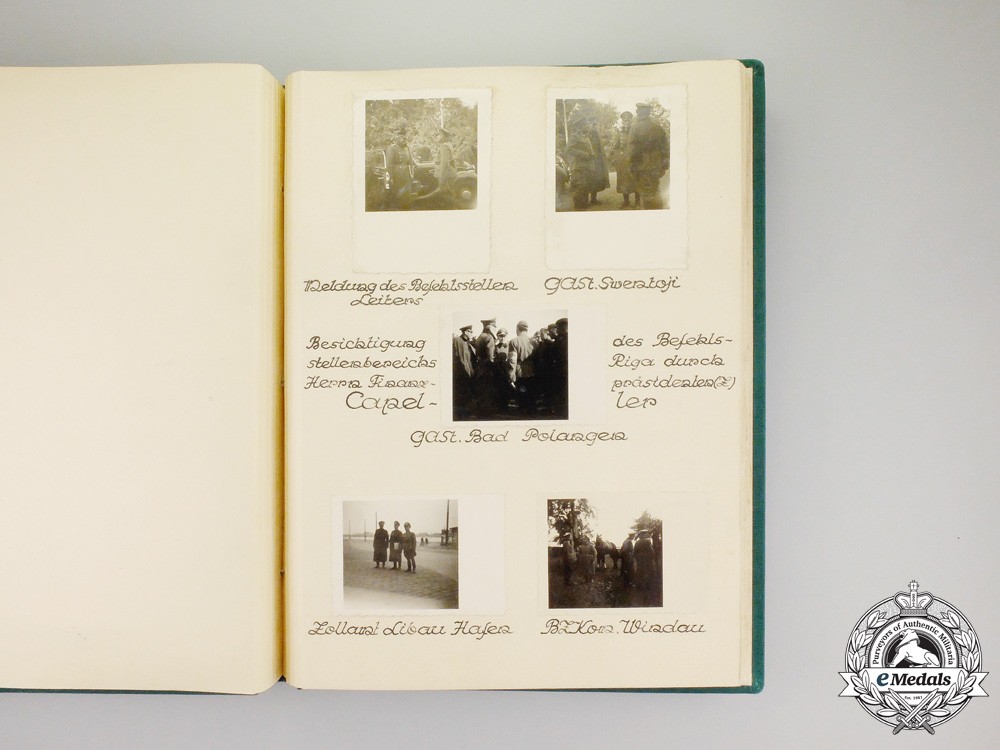 Meldung des Befehlsstellen
Leiters
GASt. Swentoji
Besichtigung des Befehls-
stellenbereichs Riga durch
Herrn Finanz- präsidenten(Z)
Capel- ler
GASt. Bad Polangen
Zollamt Libau Hafen
BZKom. Windau
Purveyors of Authentic Militaria
eMedals
Est. 1987